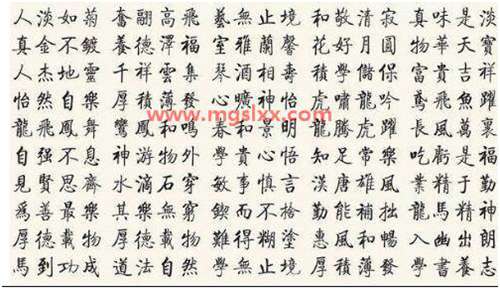 人淡如菊 奮翮高飛 藝無止境 和敬清寂 真味是淡
真金不鍍 養德澤福 室雅蘭馨 花好月圓 物華天寶
人杰地靈 千祥雲集 琴酒相壽 積學儲 富貴吉祥
怡然自樂 厚積薄發 心曠神怡 虎嘯龍吟 鳶飛魚躍
www.mgslxx.com
龍飛鳳舞 鸞鳳和鳴 春和景明 龍騰虎躍 長風萬裏
自强不息 神游物外 學貴心悟 知足常樂 吃虧是福
見賢思齊 水滴石穿 敏事慎言 漢唐雄風 業精于勤
爲善最樂 其樂無窮 鍥而不捨 勤能補拙 龍馬精神
厚德載物 厚德載物 難得糊塗 惠風和暢 入幽出朗
馬到功成 道法自然 學無止境 厚積薄發 學書養志